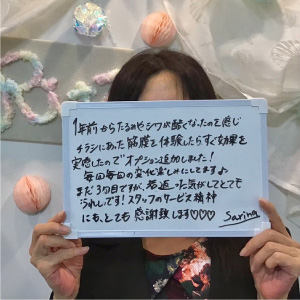 1年前からたるみやシワが酷くなったのを感じ
チラシにあった筋膜を体験したらすぐ効果を
実感したのでオプション追加しました!
毎回毎回の変化楽しみにしてます♪
まだ3回目ですが、若返った気がしてとても
うれしいです!スタッフのサービス精神
にも、とても感謝致します♡♡♡ Sarina